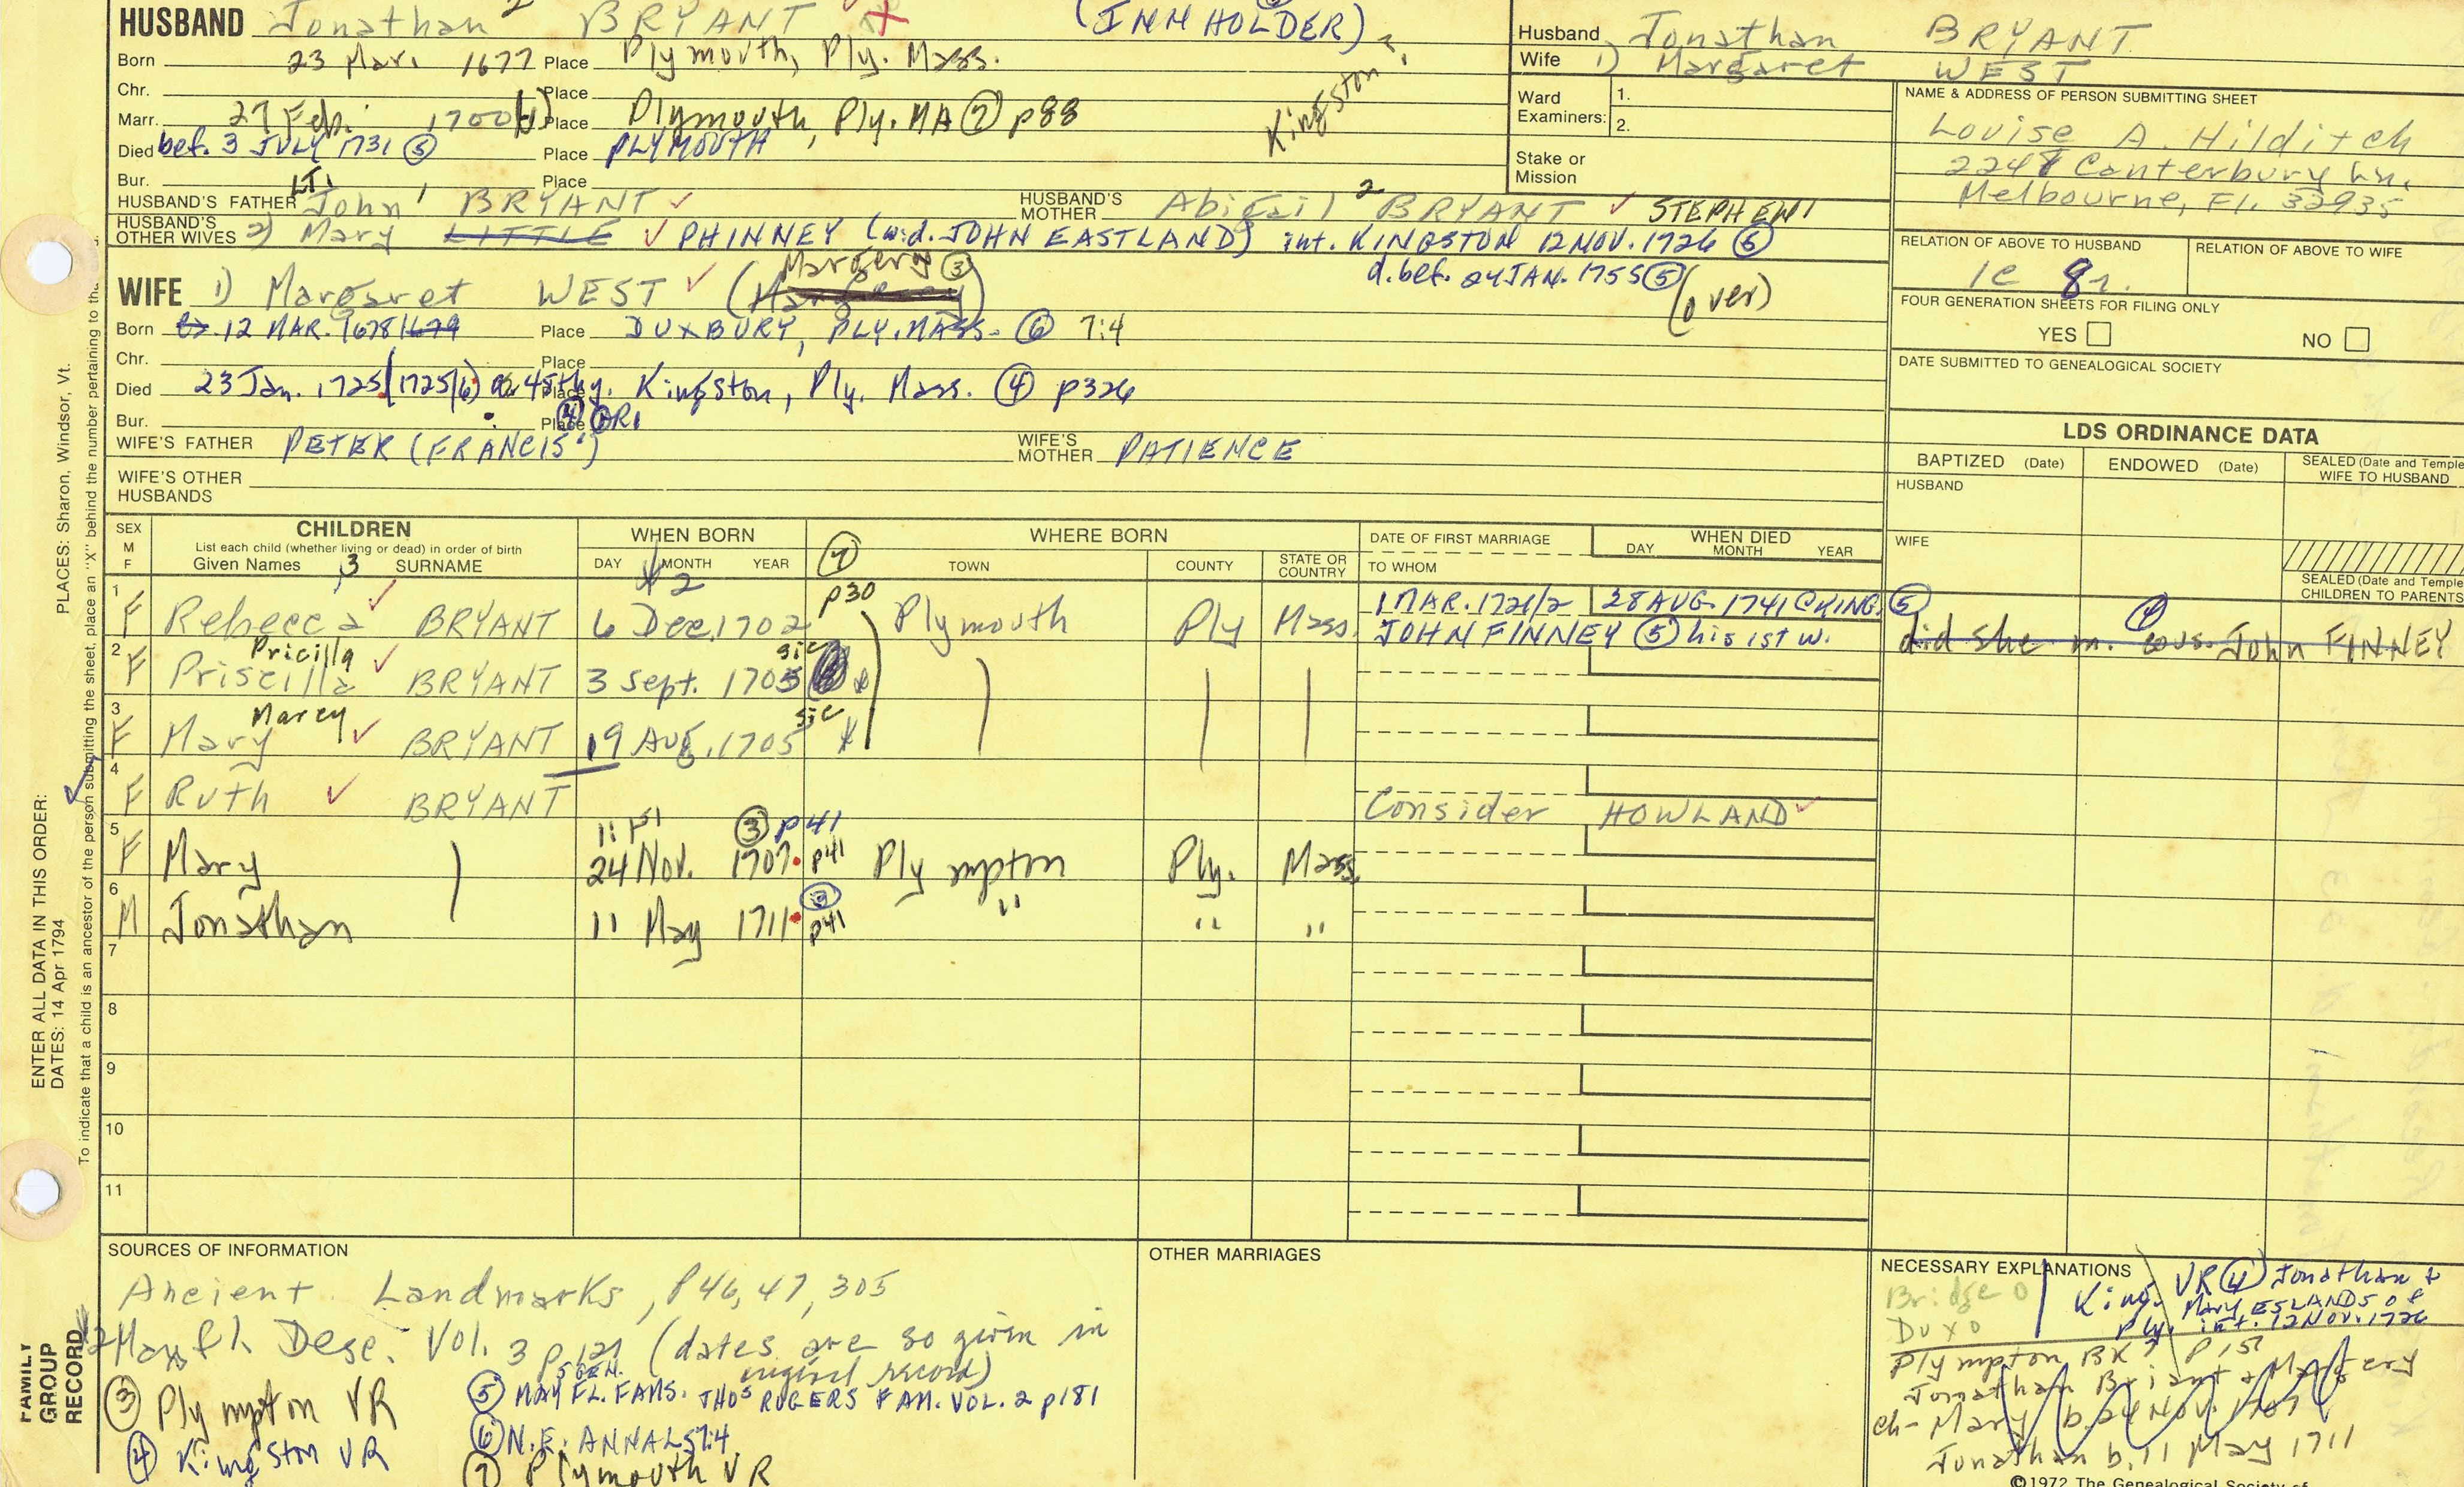 HUSBAND Jonathan 2 BRYANT X (INNHOLDER)
Born 23 Mar. 1677 Place Plymouth, Ply. Mass.
Kingston?
Chr. Place
Marr. 27 Feb. 1700 Place Plymouth, Ply. MA (7) p88
Died bef. 3 JULY 1731 (5) Place PLYMOUTH
Bur. Place
HUSBAND'S FATHER LT. John 1 BRYANT ✓ HUSBAND'S MOTHER Abigail 2 BRYANT ✓ STEPHEN 1
HUSBAND'S OTHER WIVES 2) Mary LITTLE ✓ PHINNEY (wid. JOHN EASTLAND) int. KINGSTON 12 NOV. 1726 (5)
d. bef. 24 JAN. 1755 (5) (over)
WIFE 1) Margaret WEST ✓ (Margery (3))
Born 12 MAR. 1678/1679 Place DUXBURY, PLY. MASS. (6) 7:4
Chr. Place
Died 23 Jan. 1725 (1725/6) ae 45th y. Place Kingston, Ply. Mass. (4) p326
Bur. Place (4) GR1
WIFE'S FATHER PETER (FRANCIS 1) WIFE'S MOTHER PATIENCE
WIFE'S OTHER HUSBANDS
Husband Jonathan BRYANT
Wife 1) Margaret WEST
Ward Examiners: 1.
2.
Stake or Mission
NAME & ADDRESS OF PERSON SUBMITTING SHEET
Louise A. Hilditch
2248 Canterbury Ln.
Melbourne, Fl. 32935
RELATION OF ABOVE TO HUSBAND RELATION OF ABOVE TO WIFE
1C 8r.
FOUR GENERATION SHEETS FOR FILING ONLY
YES NO
DATE SUBMITTED TO GENEALOGICAL SOCIETY
LDS ORDINANCE DATA
BAPTIZED (Date) ENDOWED (Date) SEALED (Date and Temple WIFE TO HUSBAND
HUSBAND
WIFE
SEALED (Date and Temple CHILDREN TO PARENTS
SEX M F CHILDREN WHEN BORN WHERE BORN DATE OF FIRST MARRIAGE WHEN DIED
List each child (whether living or dead) in order of birth
Given Names 3 SURNAME DAY MONTH YEAR (7) TOWN COUNTY STATE OR COUNTRY TO WHOM DAY MONTH YEAR
* 2 p30
1 F Rebecca ✓ BRYANT 6 Dec. 1702 Plymouth Ply Mass. 1 MAR. 1721/2 28 AUG. 1741 @ KING. (5)
JOHN FINNEY (5) his 1st w. did she m. cous. John FINNEY
Pricilla sic
2 F Priscilla ✓ BRYANT 3 Sept. 1703 *
Marcy sic
3 F Mary ✓ BRYANT 19 Aug. 1705 *
4 F Ruth ✓ BRYANT Consider HOWLAND ✓
1:151 (3) p41
5 F Mary 24 Nov. 1707 p41 Plympton Ply. Mass.
6 M Jonathan 11 May 1711 p41 " " "
7
8
9
10
11
SOURCES OF INFORMATION
Ancient Landmarks, p46, 47, 305
*2 Mayfl. Desc. Vol. 3 p121 (dates are so given in
original record)
(3) Plympton VR
(4) Kingston VR
(5) 5 GEN. MAYFL. FAMS. THOS ROGERS FAM. VOL. 2 p181
(6) N.E. ANNALS 7:4
(7) Plymouth VR
OTHER MARRIAGES
NECESSARY EXPLANATIONS
Bridge 0
Dux 0
King. VR (4) Jonathan &
Mary ESLANDS of
Ply. int. 12 Nov. 1726
Plympton BK 1 p 151
Jonathan Briant & Margery
ch- Mary b. 24 Nov. 1707
Jonathan b. 11 May 1711
©1972 The Genealogical Society of
PLACES: Sharon, Windsor, Vt.
ENTER ALL DATA IN THIS ORDER:
DATES: 14 Apr 1794
To indicate that a child is an ancestor of the person submitting the sheet, place an "X" behind the number pertaining to th
FAMILY GROUP RECORD